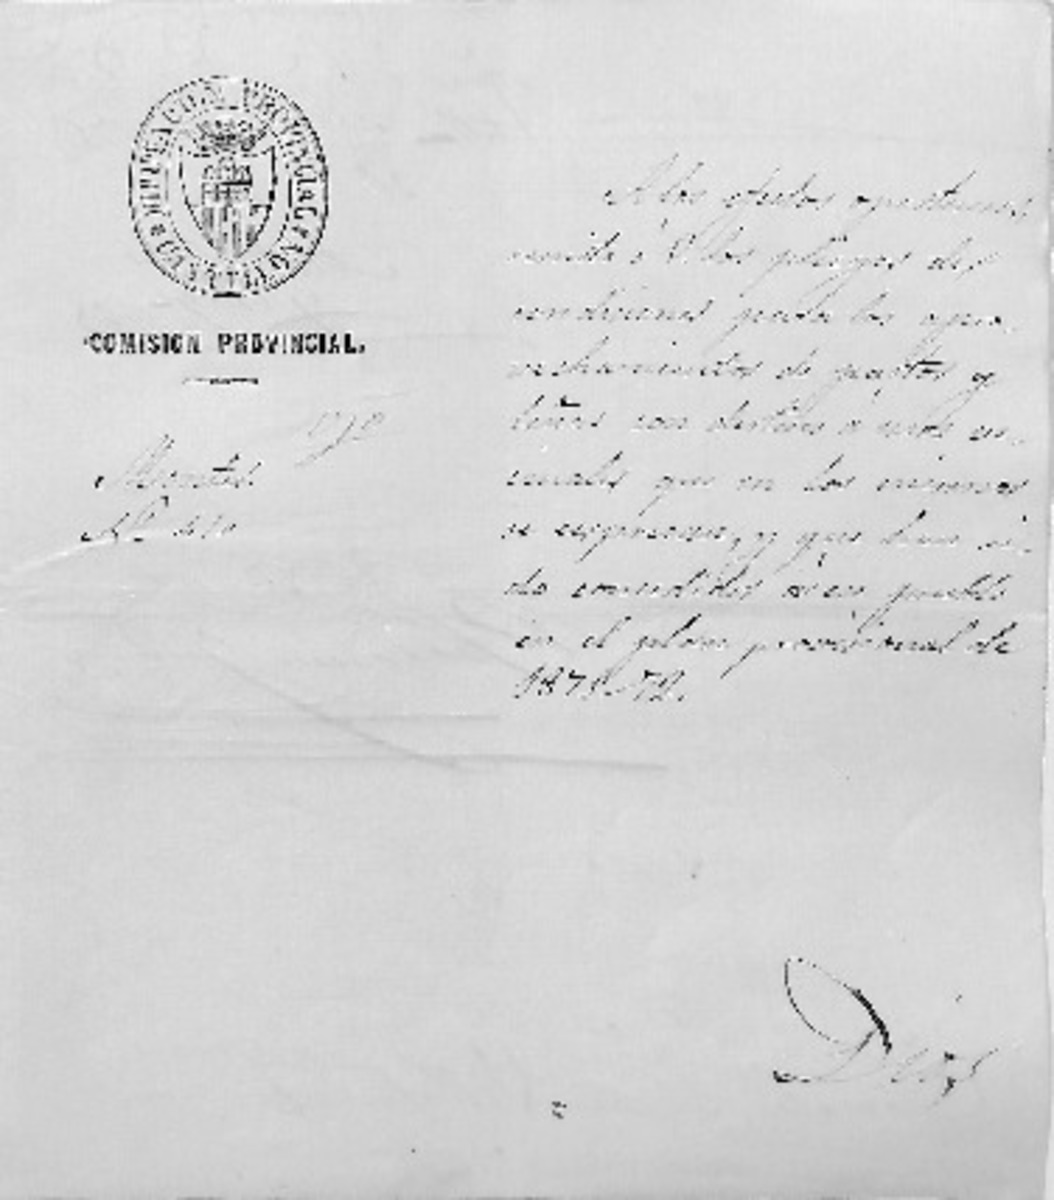 DIPUTACION PROVINCIAL
COMISION PROVINCIAL.
Montes
Nº 410
A los efectos oportunos
remito a V. los pliegos de
condiciones para los apro-
vechamientos de pastos y
leñas con destino a usos ve-
cinales que en los mismos
se expresan, y que han si-
do concedidos a ese pueblo
en el plan provisional de
1871-72.
Dios